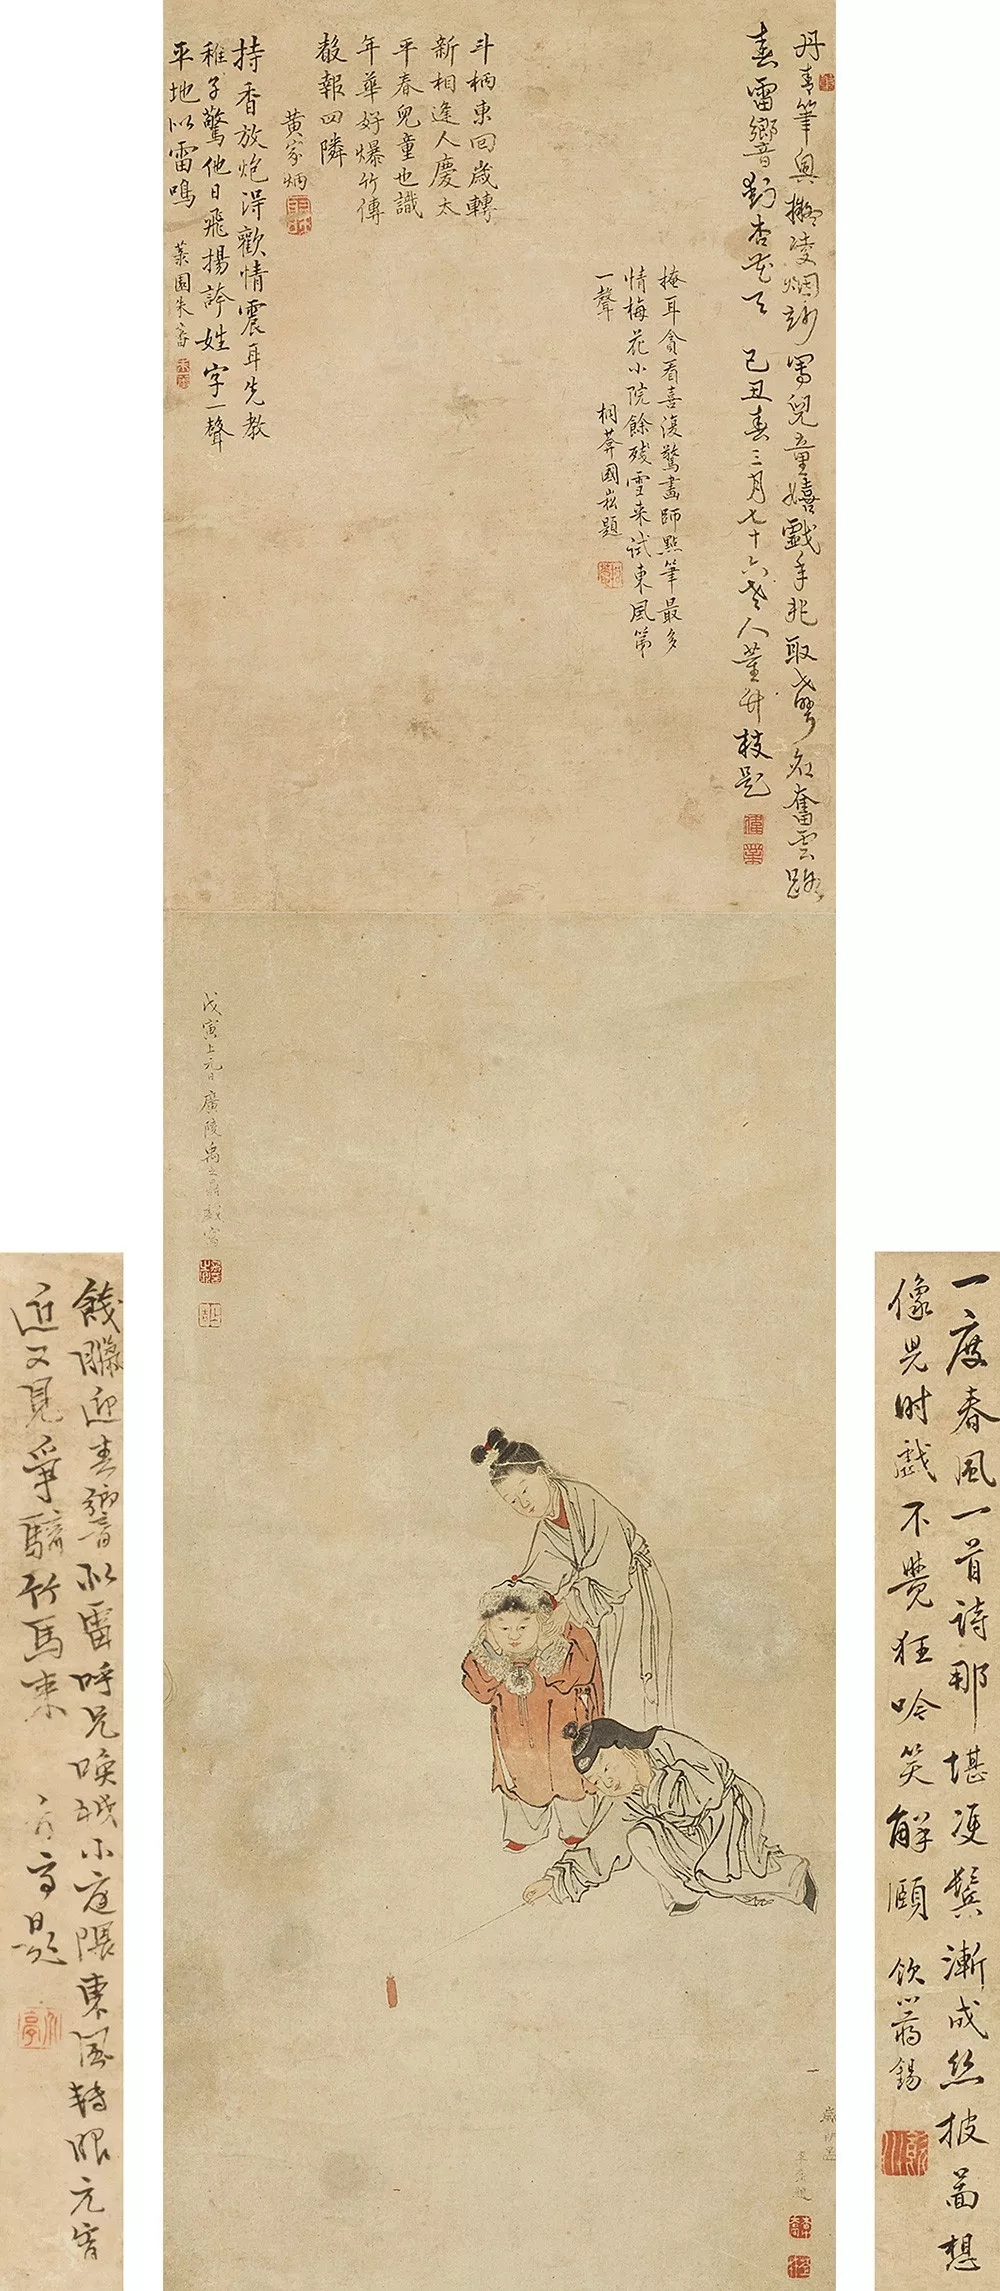 丹青筆與擬凌烟認寫兒童嬉戲年兆取聲名奮雲路
春雷響動杏花天 己丑春三月七十六老人董升枝題
掩耳貪看喜復驚畫師點筆最多
情梅花小院餘殘雪来試東風第
一聲
桐莽國崧題
斗柄東回歲轉
新相逢人慶太
平春兒童也識
年華好爆竹傳
聲報四隣
黃家炳
持香放炮浔歡情震耳先教
稚子驚他日飛揚誇姓字一聲
平地似雷鳴
戊寅上元日廣陵禹之鼎戲寫
一度春風一首詩那堪便鬓漸成丝披啚想
像児时戲不覺狂吟笑解頤
蔣錫
餞臘迎春響似雷呼兄喚弟小庭隈東風轉眼元宵
近又見爭騎竹馬来